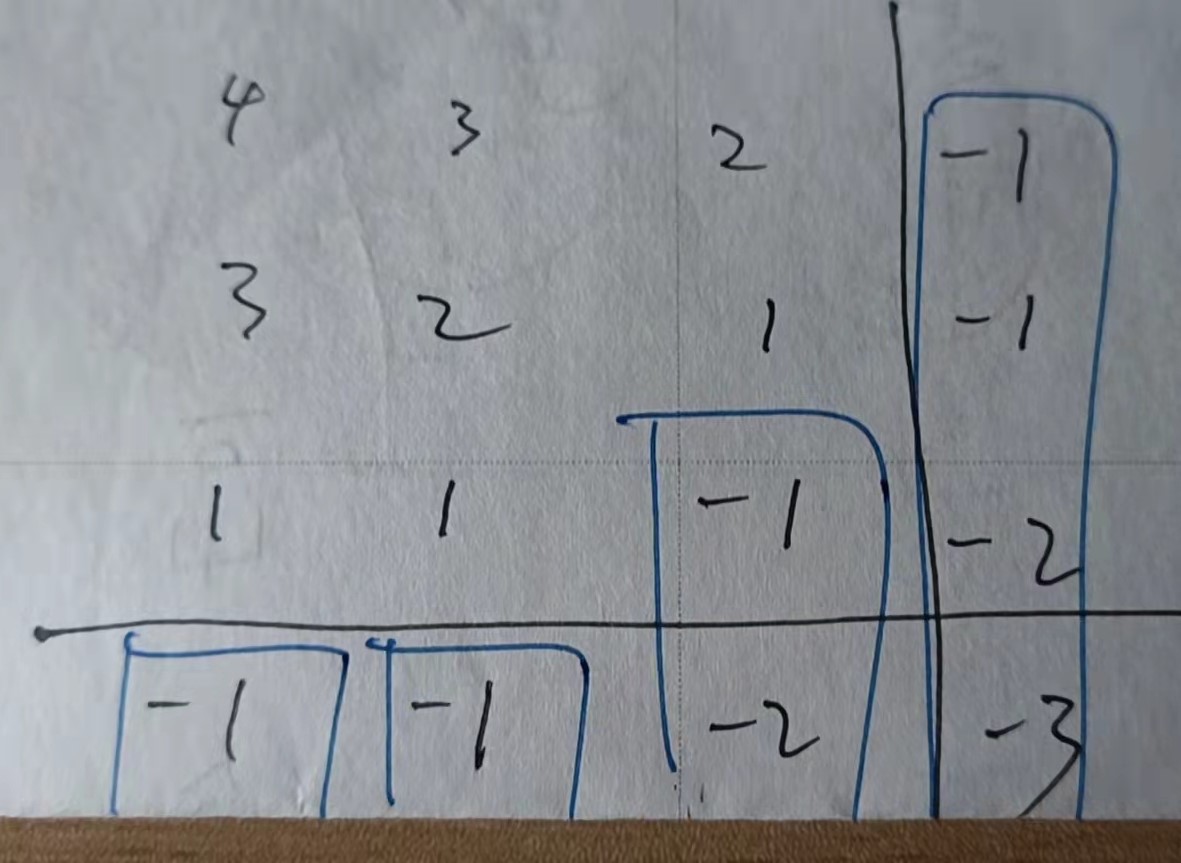 4 3 2 -1
3 2 1 -1
1 1 -1 -2
-1 -1 -2 -3